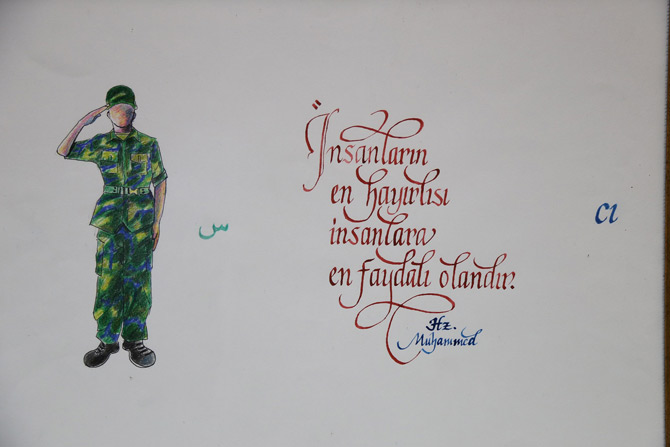 "İnsanların
en hayırlısı
insanlara
en faydalı olandır.
Hz.
Muhammed
س
cı